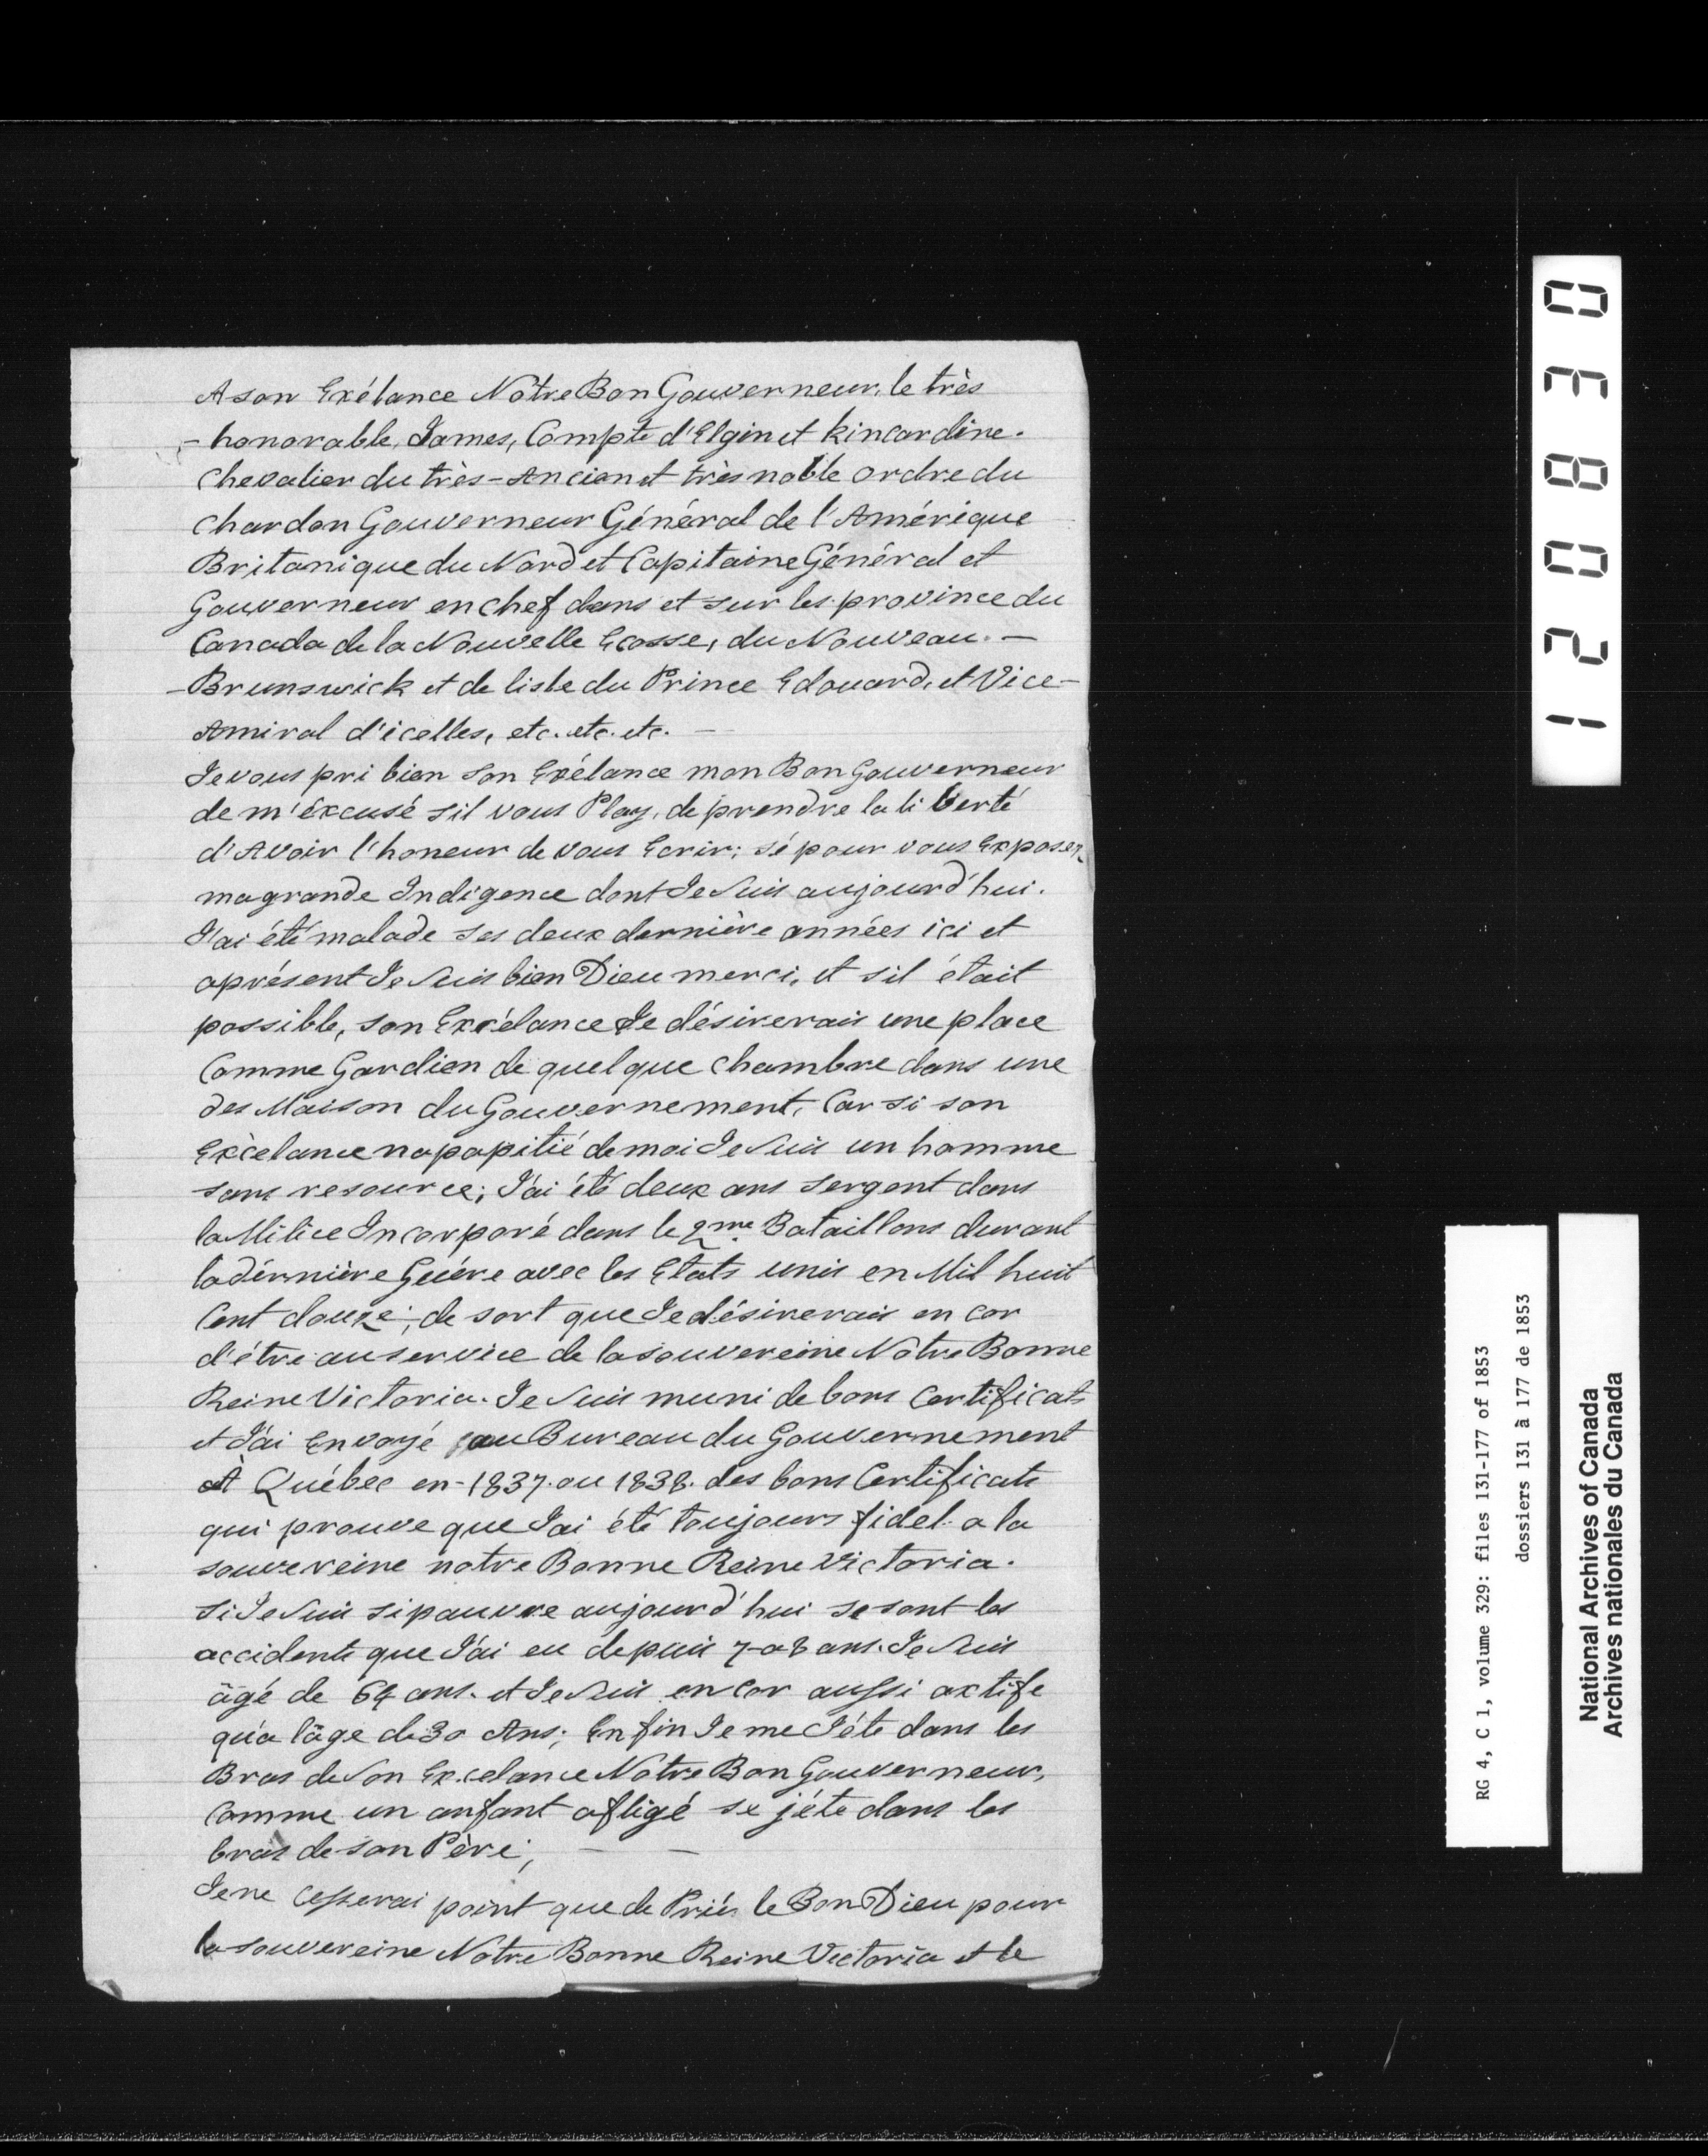 A son Exélance Notre Bon Gouverneur, le très
- honorable, James, Compte d'Elgin et Kincardine.
Chevalier du très-Ancien et très noble ordre du
Chardon Gouverneur Général de l'Amérique
Britanique du Nord et Capitaine Général et
Gouverneur en chef dans et sur les province du
Canada de la Nouvelle Ecosse, du Nouveau. -
-Brunswick et de lisle du Prince Edouard, et Vice-
Amiral d'icelles, etc. etc. etc. -
Je vous pri bien Son Exélance mon Bon Gouverneur
de m'éxcusé sil vous Play, de prendre la liberté
d'Avoir l'honeur de vous Ecrir; sé pour vous Exposer,
ma grande Indigence dont Je Suis aujourd'hui.
J'ai été malade ses deux dernière années ici et
aprésent Je Suis bien Dieu merci, et sil était
possible, son Excélance Je désirerais une place
Comme Gardien de quelque chambre dans une
des Maison du Gouvernement, Car si son
Excelance napapitié de moi Je Suis un homme
sans resource; J'ai été deux ans Sergent dans
la Milice Incorporé dans le 2me. Bataillons durant
la dérnière Guére avec les Etats unis en Mil huit
Cent douze; de sort que Je désirerais en cor
d'étre au service de la souvereine Notre Bonne
Reine Victoria. Je Suis muni de bons Certificats
et J'ai Envoyé au Bureau du Gouvernement
A Québec en-1837. ou 1838. des bons Certificats
qui prouve que J'ai été toujours fidel a la
souvereine notre Bonne Reine Victoria.
Si Je Suis si pauvre aujourd'hui se sont les
accidents que J'ai eu depuis 7 a 8 ans. Je Suis
âgé de 64 ans. et Je Suis en cor aussi actife
qu'a lâge de 30 Ans; Enfin Je me Jéte dans les
Bras de Son Excelance Notre Bon Gouverneur,
Comme un anfant afligé se jéte dans les
bras de son Père; - -
Je ne Cesserai point que de Priér le Bon Dieu pour
la souvereine Notre Bonne Reine Victoria et le
120830
RG 4, C 1, volume 329: files 131-177 of 1853
dossiers 131 à 177 de 1853
National Archives of Canada
Archives nationales du Canada